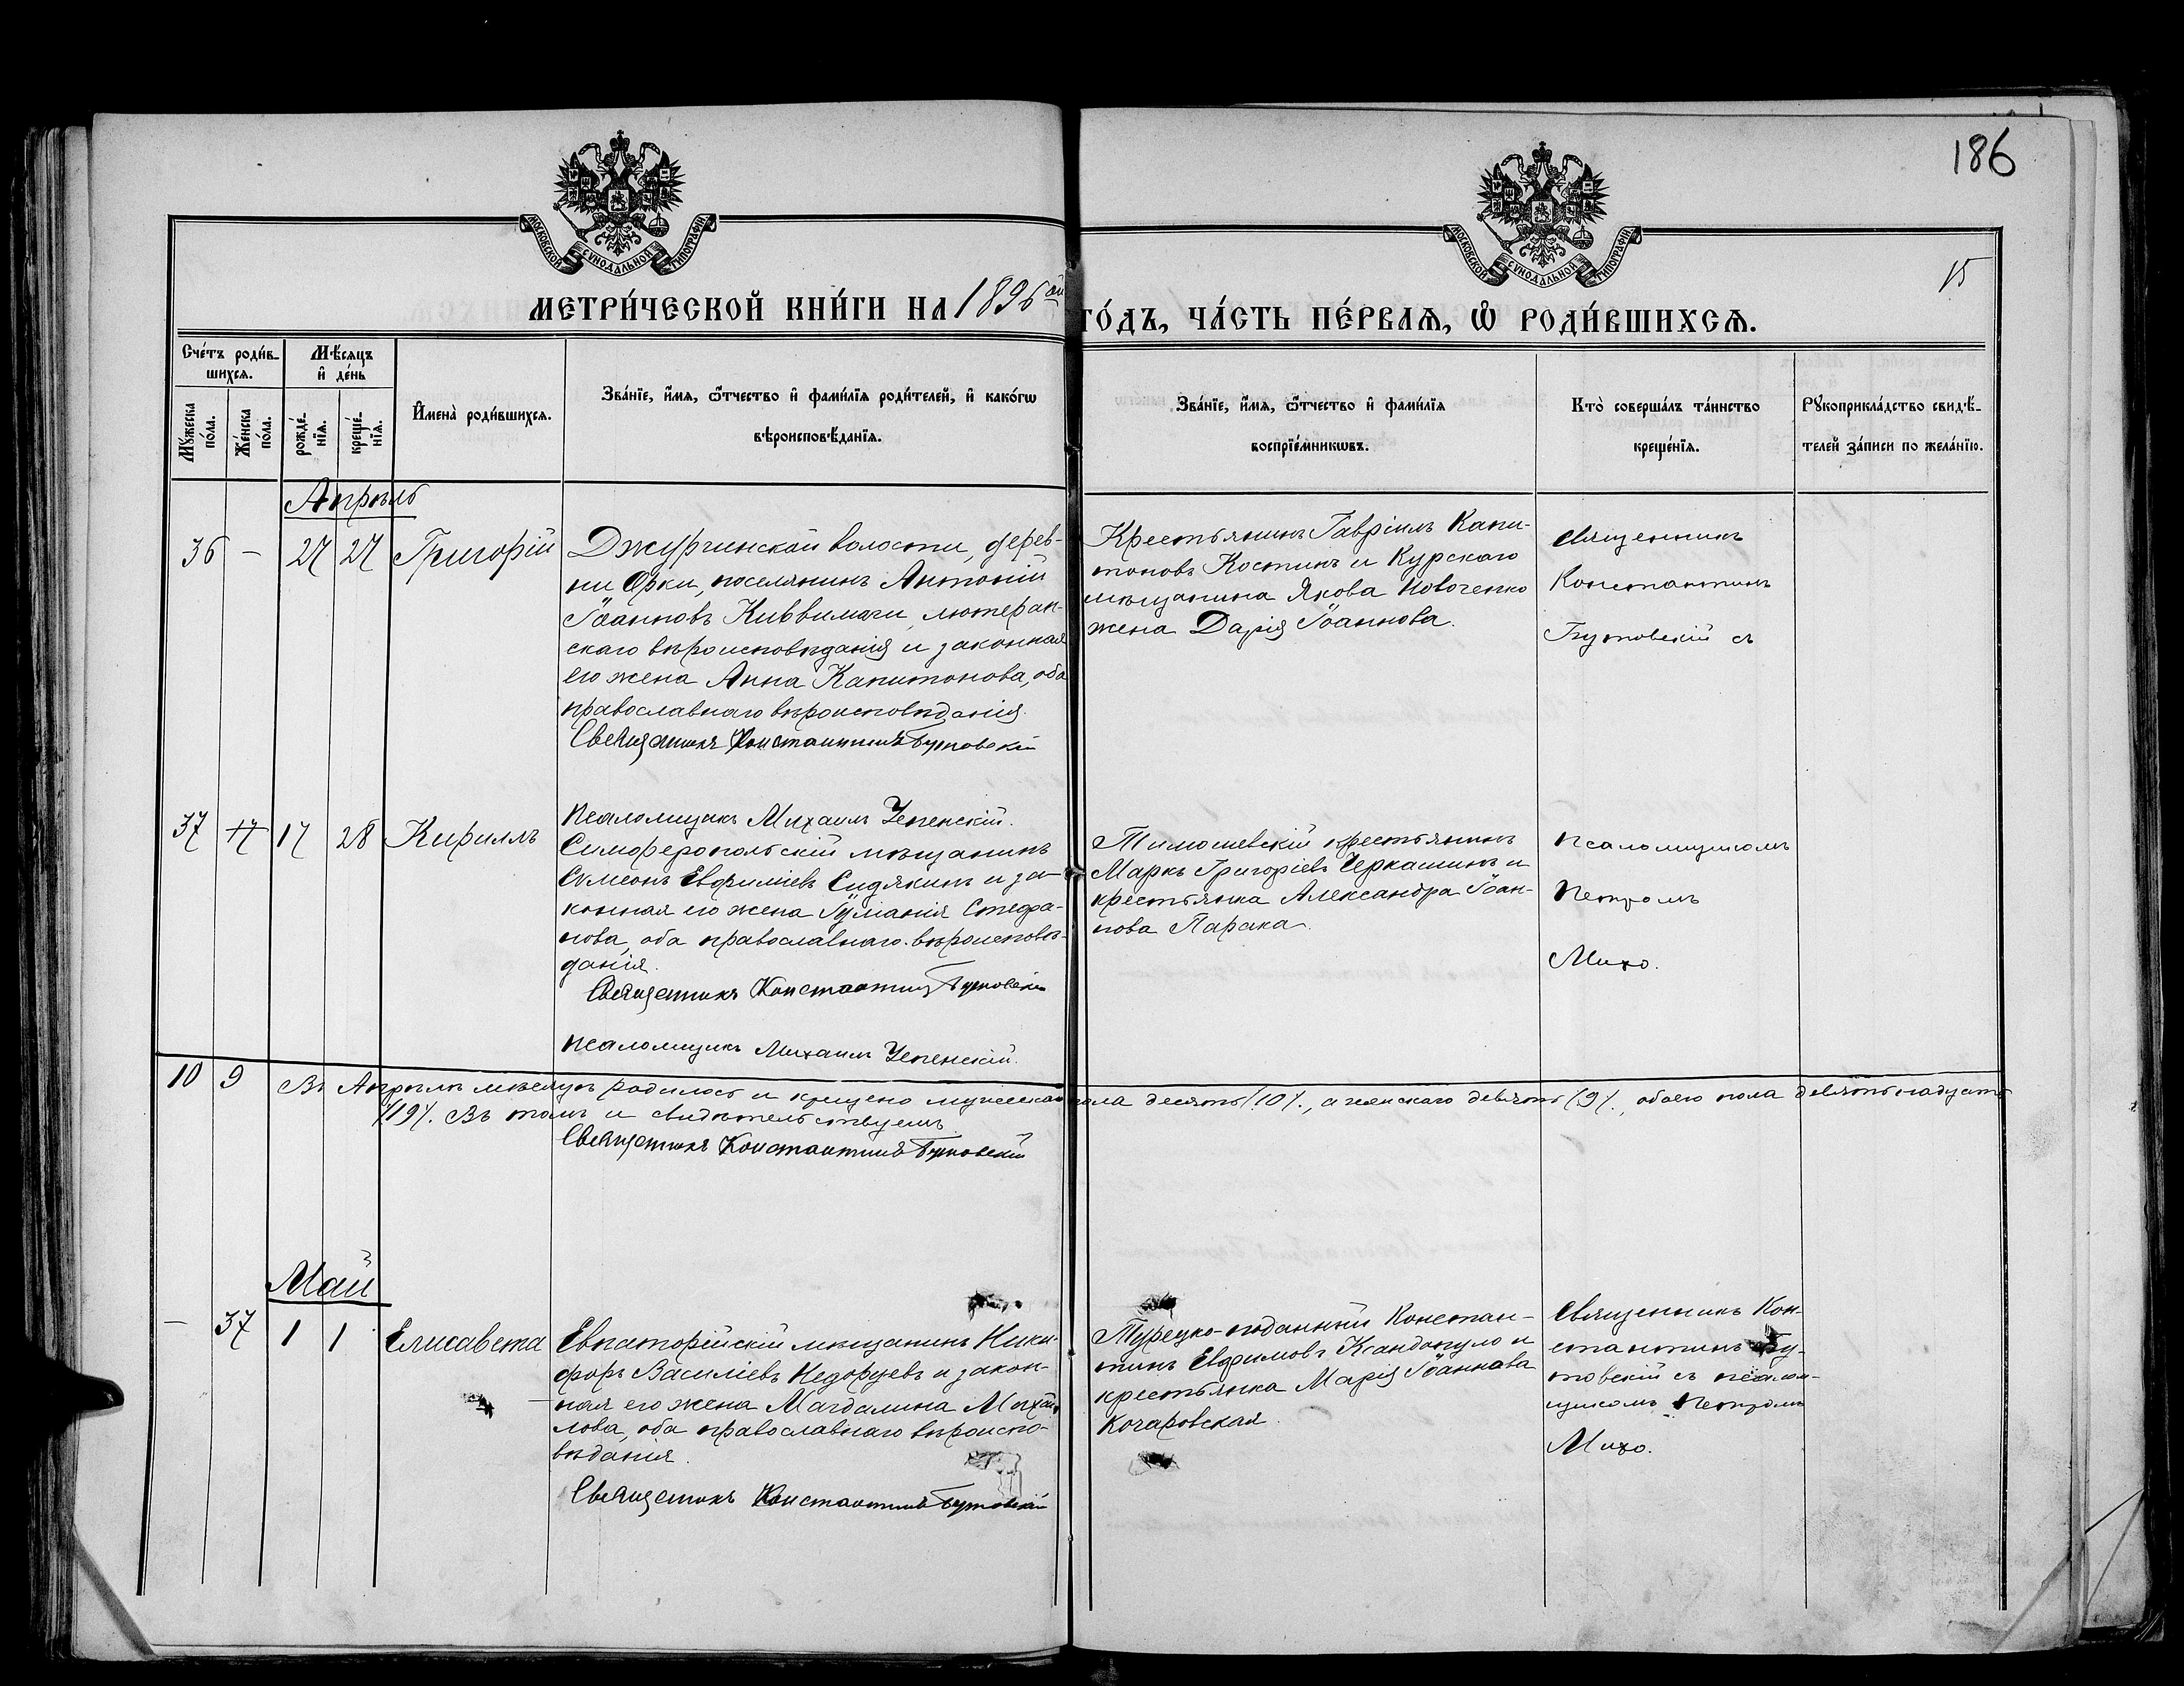 186
15
МОСКОВСКОЙ СѴНОДАЛЬНОЙ ТИПОГРАФІИ
МОСКОВСКОЙ СѴНОДАЛЬНОЙ ТИПОГРАФІИ
МЕТРИ́ЧЕСКОЙ КНИ́ГИ НА 1896ой ГО́ДЪ, ЧА́СТЬ ПЕ́РВАѦ, Ѡ҆ РОДИ́ВШИХСѦ.
Сче́тъ роди́в-
шихсѧ.
Мѣ́сѧцъ
и҆ де́нь
Мꙋ́жеска
по́ла.
Же́нска
по́ла.
рожде́-
нїѧ.
креще́-
нїѧ.
И҆мена̀ роди́вшихсѧ.
Зва́нїе, и҆́мѧ, ѻ҆́тчество и҆ фами́лїѧ роди́телей, и҆ како́гѡ
вѣроисповѣ́данїѧ.
Зва́нїе, и҆́мѧ, ѻ҆́тчество и҆ фами́лїѧ
воспрїе́мникѡвъ.
Кто̀ соверша́лъ та́инство
креще́нїѧ.
Рꙋкоприкла́дство свидѣ́-
телей за́писи по жела́нїю.
Апрѣль
36 – 27 27 Григорій
Джурчинской волости, дерев-
ни Орки, поселянинъ Антоній
Іоанновъ Киввимяги, лютеран-
скаго вѣроисповѣданія и законная
его жена Анна Капитонова, оба
православнаго вѣроисповѣданія.
Священникъ Константинъ Бутовскій
Псаломщикъ Михаилъ Успенскій.
Крестьянинъ Гавріилъ Капи-
тоновъ Костинъ и Курскаго
мѣщанина Якова Новоченко
жена Дарія Іоаннова.
Священникъ
Константинъ
Бутовскій съ
37 17 17 28 Кириллъ
Симферопольскій мѣщанинъ
Сѵмеонъ Евфиміевъ Сидякинъ и за-
конная его жена Іуліанія Стефа-
нова, оба православнаго вѣроисповѣ-
данія.
Священникъ Константинъ Бутовскій
Псаломщикъ Михаилъ Успенскій.
Тимошевскій крестьянинъ
Маркъ Григоріевъ Черкашинъ и
крестьянка Александра Іоан-
нова Парака.
псаломщикомъ
Петромъ
Михо.
10 9 Въ Апрѣлѣ мѣсяцѣ родилось и крещено мужескаго пола десять /10/., а женскаго девять /9/., обоего пола девятьнадцать
/19/. Въ томъ и свидѣтельствуемъ
Священникъ Константинъ Бутовскій
Май
– 37 1 1 Елисавета
Евпаторійскій мѣщанинъ Ники-
форъ Василіевъ Недоруевъ и закон-
ная его жена Магдалина Михаи-
лова, оба православнаго вѣроиспо-
вѣданія.
Священникъ Константинъ Бутовскій
Турецко-подданный Констан-
тинъ Евфимовъ Ксандопуло и
крестьянка Марія Іоаннова
Кочаровская.
Священникъ Кон-
стантинъ Бу-
товскій съ псалом-
щикомъ Петромъ
Михо.